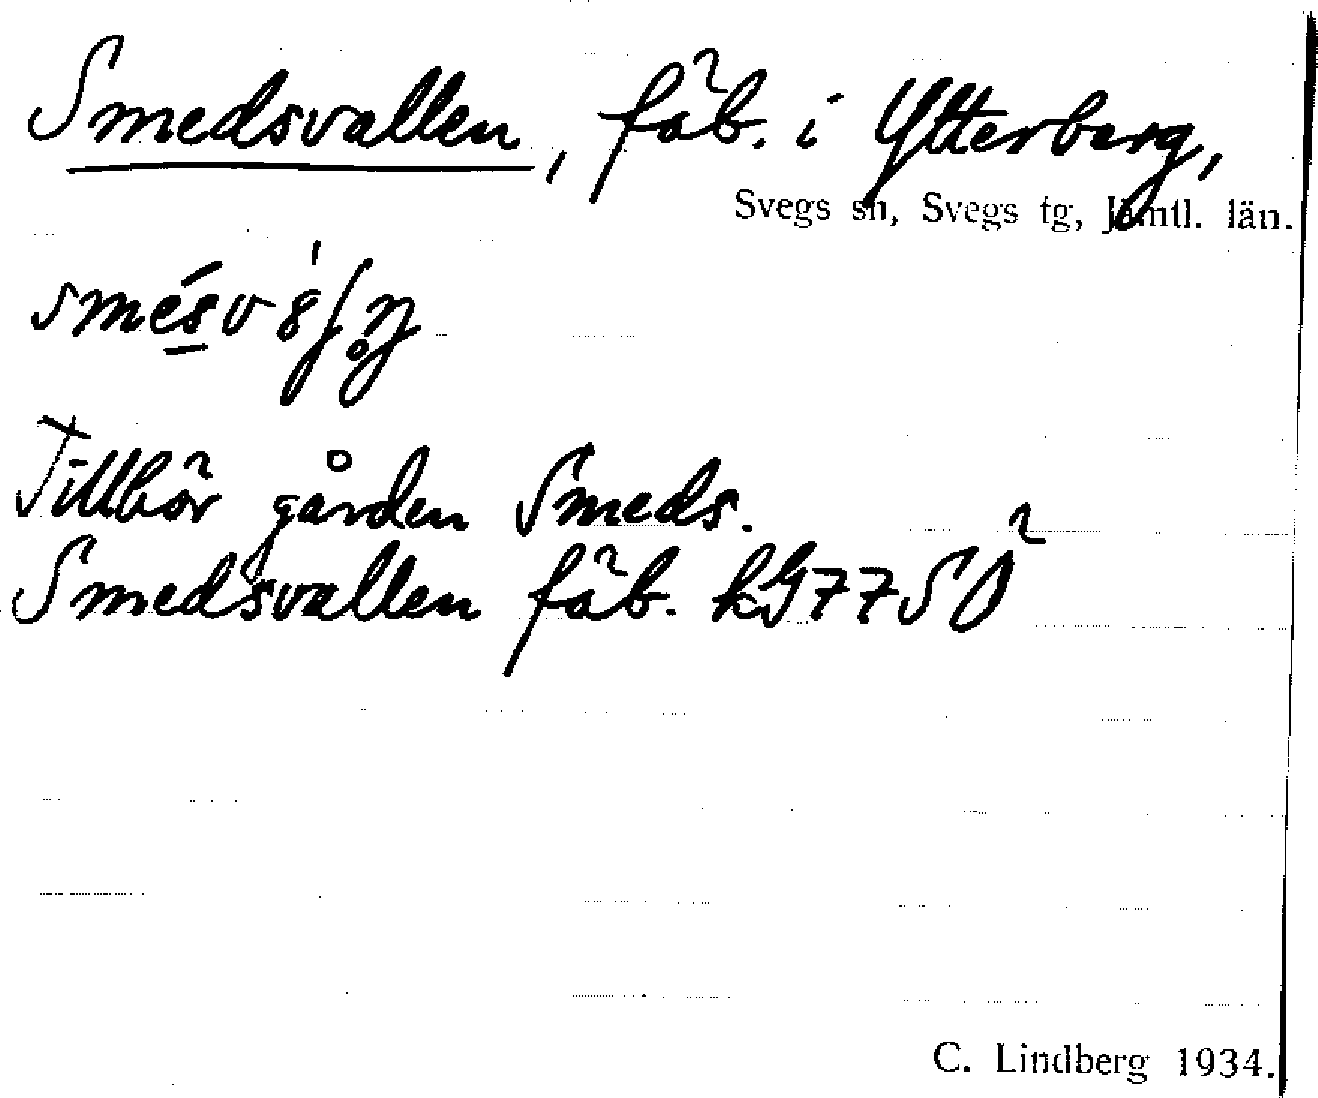 Smedsvallen, fäb. i Ytterberg,
Svegs sn, Svegs tg, Jämtl. län.
Tillhör gården Smeds.
Smedsvallen fäb. kG77SÖ
C. Lindberg 1934.